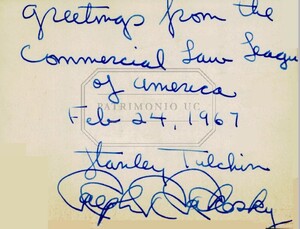 Greetings from the
Commercial Law League
of America
PATRIMONIO UC
Feb 24, 1967
Stanley Tulchin
Ralph